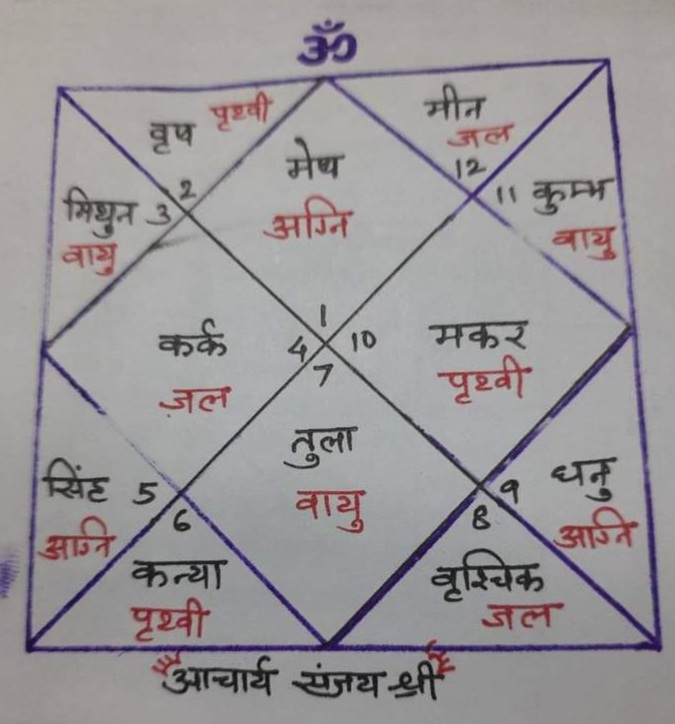 ॐ
वृष पृथ्वी
मीन
जल
मेष
अग्नि
2
12
मिथुन 3
वायु
11 कुम्भ
वायु
1
कर्क
जल
4
10
7
मकर
पृथ्वी
तुला
वायु
सिंह 5
अग्नि
9 धनु
अग्नि
6
कन्या
पृथ्वी
8
वृश्चिक
जल
आचार्य संजय श्री